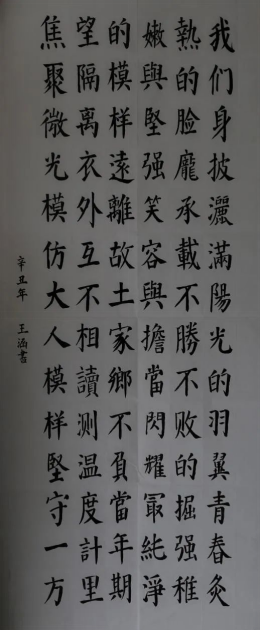 我们身披灑滿陽光的羽翼青春灸
熱的脸龐承載不勝不败的掘强稚
嫩與堅强笑容與擔當閃耀冣純淨
的模样遠離故土家鄉不負當年期
望隔离衣外互不相讀测温度計里
焦聚微光模仿大人模样堅守一方
辛丑年 王涵書